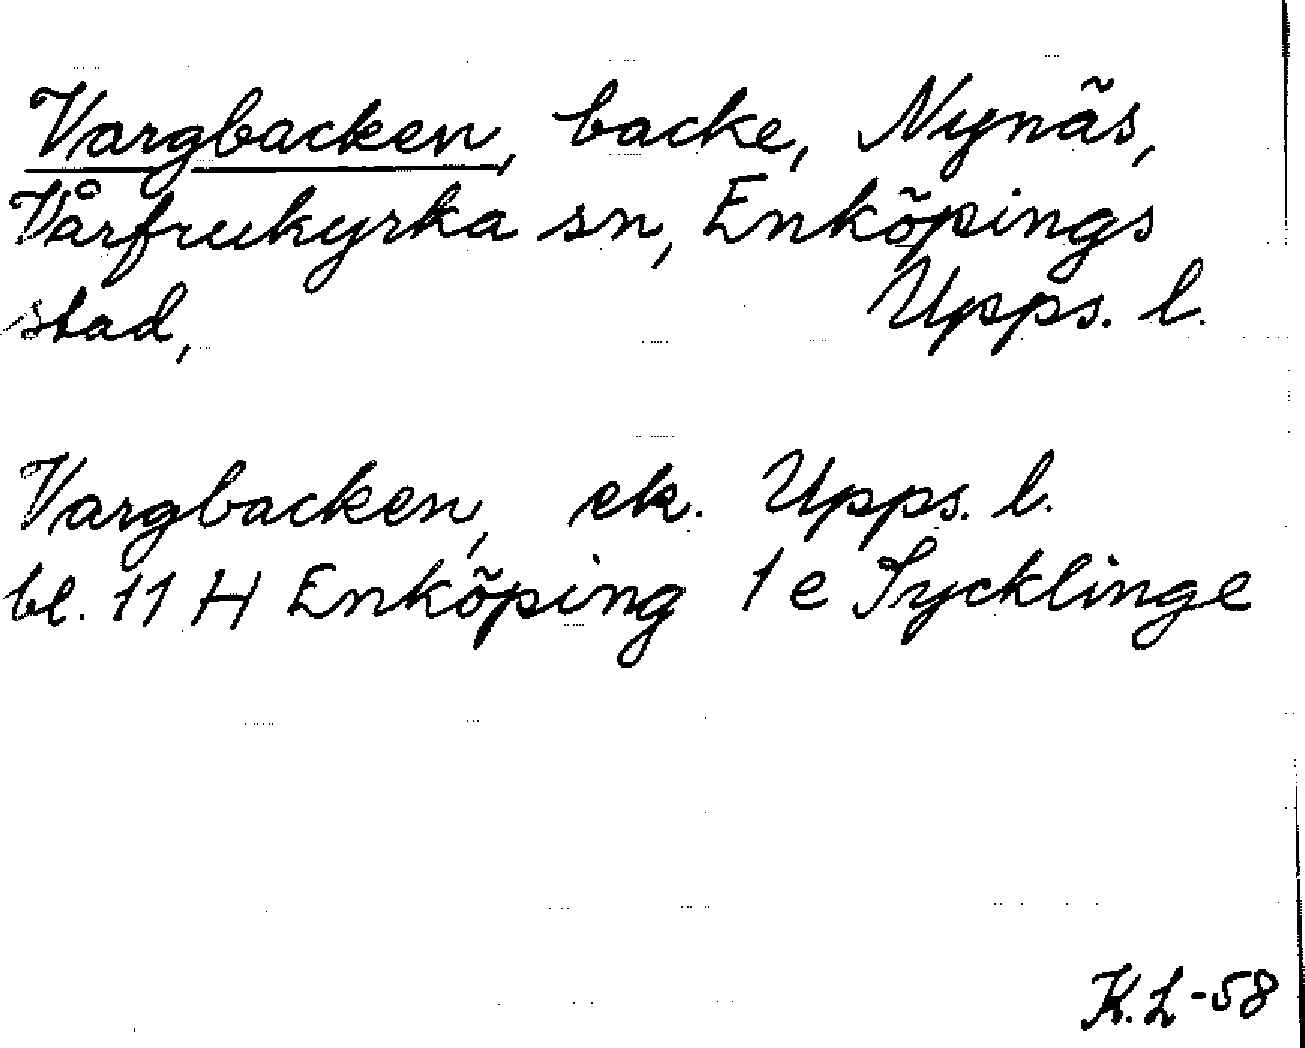 Vargbacken, backe, Nynäs,
Vårfrukyrka sn, Enköpings
stad, Upps. l.
Vargbacken, ek. Upps. l.
bl. 11 H Enköping 1 e Sycklinge
K.L-58